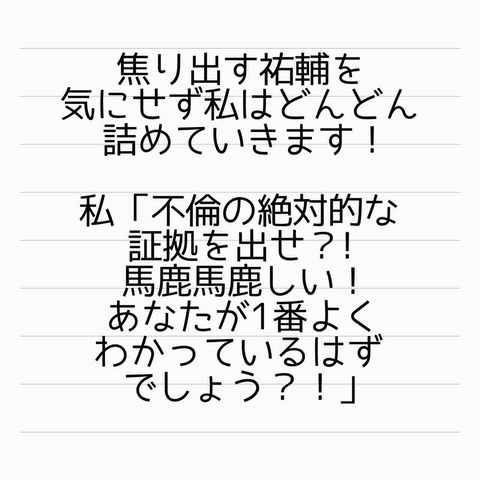 焦り出す祐輔を
気にせず私はどんどん
詰めていきます！
私「不倫の絶対的な
証拠を出せ？！
馬鹿馬鹿しい！
あなたが1番よく
わかっているはず
でしょう？！」